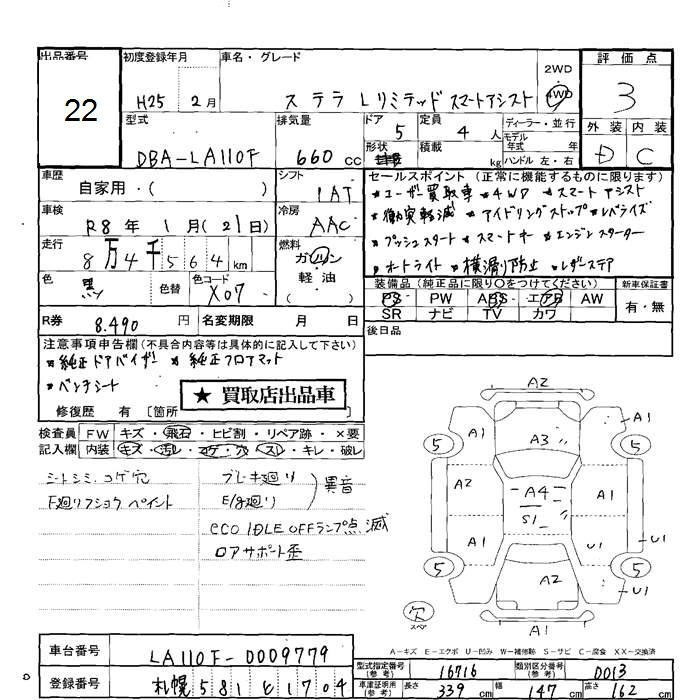 出品番号 初度登録年月 車名・グレード 2WD 評価点
22 H25 2月 ステラ Lリミテッド スマートアシスト 4WD 3
型式 排気量 ドア 定員 ディーラー・並行 外装 内装
DBA-LA110F 660cc 5 4人 モデル年式 年 D C
形状 積載 kg ハンドル 左・右
車歴 シフト セールスポイント(正常に機能するものに限ります)
自家用・( ) IAT *ユーザー買取車 *4WD *スマートアシスト
車検 冷房 *衝突軽減 *アイドリングストップ *レベライズ
R8年 1月(21日) AAC *プッシュスタート *スマートキー *エンジンスターター
走行 燃料 *オートライト *横滑り防止 *レザーステア
8万4千564km ガソリン 軽油 ( )
色 色替 色コード 装備品(純正品に限り○をつけてください) 新車保証書
黒 X07 PS PW ABS エアB AW 有・無
SR ナビ TV カワ
R券 8.490円 名変期限 月 日 後日品
注意事項申告欄(不具合内容等は具体的に記入して下さい)
*純正ドアバイザー *純正フロアマット
*ベンチシート
★ 買取店出品車
修復歴 有 [箇所
検査員 FW キズ・飛石・ヒビ割・リペア跡・×要
記入欄 内装 キズ・汚レ・コゲ・穴・スレ・キレ・破レ
シートシミ、コゲ穴 ブレーキ廻り
F廻りフショク ペイント E/g廻り ) 異音
eco IDLE OFFランプ点滅
ロアサポート歪
A2
A1 A3 A1
5 5
A2 A4 A1
S1
A1 U1 U1
5 A2 5
U1
欠 スペア A1
A-キズ E-エクボ U-凹み W-補修跡 S-サビ C-腐食 XX-交換済
車台番号 LA110F-0009779
型式指定番号(参考) 16716 類別区分番号(参考) 0013
登録番号 札幌 581 61704
車庫証明用(参考) 長さ 339cm 幅 147cm 高さ 162cm